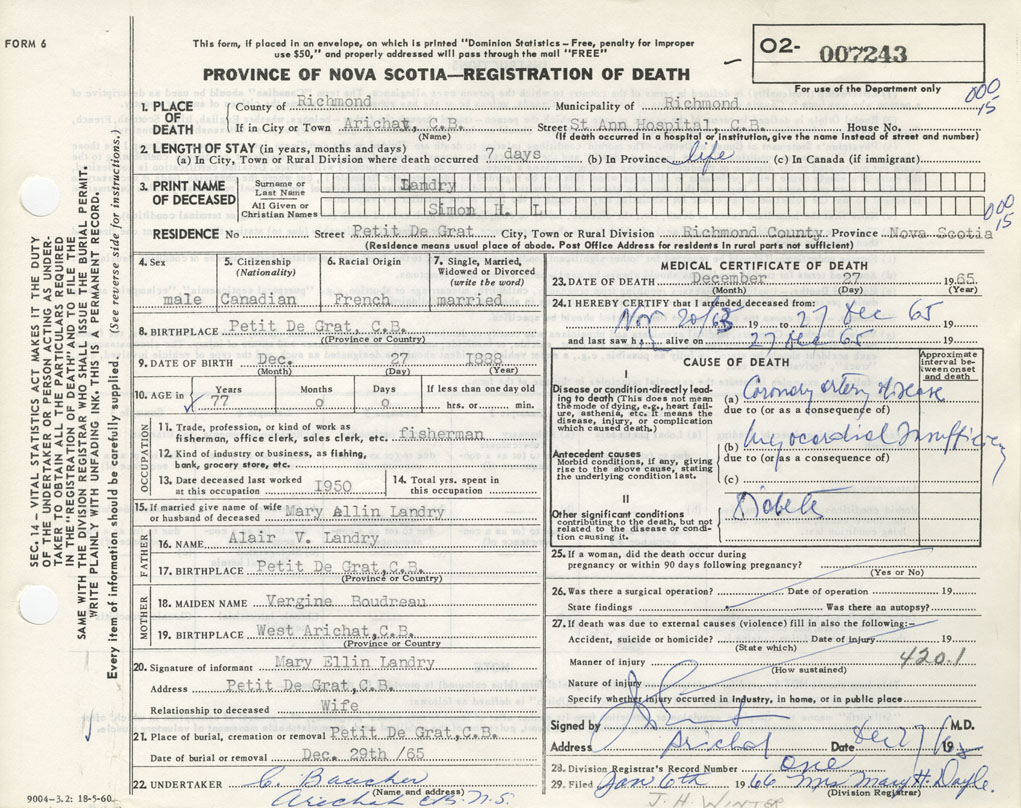 FORM 6
This form, if placed in an envelope, on which is printed "Dominion Statistics – Free, penalty for improper
use $50," and properly addressed will pass through the mail "FREE"
PROVINCE OF NOVA SCOTIA—REGISTRATION OF DEATH
02- 007243
For use of the Department only
000
15
1. PLACE OF DEATH
County of Richmond Municipality of Richmond
If in City or Town Arichat, C.B. Street St Ann Hospital, C.B. House No.
(Name) (If death occurred in a hospital or institution, give the name instead of street and number)
2. LENGTH OF STAY (in years, months and days)
(a) In City, Town or Rural Division where death occurred 7 days (b) In Province life (c) In Canada (if immigrant)
3. PRINT NAME OF DECEASED
Surname or Last Name Landry
All Given or Christian Names Simon H. L
000
15
RESIDENCE No Street Petit De Grat City, Town or Rural Division Richmond County Province Nova Scotia
(Residence means usual place of abode. Post Office Address for residents in rural parts not sufficient)
4. Sex 5. Citizenship (Nationality) 6. Racial Origin 7. Single, Married, Widowed or Divorced (write the word)
male Canadian French married
8. BIRTHPLACE Petit De Grat, C.B.
(Province or Country)
9. DATE OF BIRTH Dec. 27 1888
(Month) (Day) (Year)
10. AGE in Years Months Days If less than one day old
77 0 0 hrs. or min.
OCCUPATION
11. Trade, profession, or kind of work as
fisherman, office clerk, sales clerk, etc. fisherman
12. Kind of industry or business, as fishing,
bank, grocery store, etc.
13. Date deceased last worked at this occupation 1950
14. Total yrs. spent in this occupation
15. If married give name of wife
or husband of deceased Mary Allin Landry
FATHER
16. NAME Alair V. Landry
17. BIRTHPLACE Petit De Grat, C.B.
(Province or Country)
MOTHER
18. MAIDEN NAME Vergine Boudreau
19. BIRTHPLACE West Arichat, C.B.
(Province or Country)
20. Signature of informant Mary Ellin Landry
Address Petit De Grat, C.B.
Relationship to deceased Wife
21. Place of burial, cremation or removal Petit De Grat, C.B.
Date of burial or removal Dec. 29th /65
22. UNDERTAKER C. Baucher
(Name and address)
Arichat C.B. N.S.
MEDICAL CERTIFICATE OF DEATH
23. DATE OF DEATH December 27 1965
(Month) (Day) (Year)
24. I HEREBY CERTIFY that I attended deceased from:
Nov 20/63 19 to 27 Dec 65 19
and last saw h alive on 27 Dec 65 19
CAUSE OF DEATH
Approximate interval between onset and death
I
Disease or condition-directly leading to death (This does not mean the mode of dying, e.g., heart failure, asthenia, etc. It means the disease, injury, or complication which caused death.)
(a) Coronary artery disease
due to (or as a consequence of)
Antecedent causes
Morbid conditions, if any, giving rise to the above cause, stating the underlying condition last.
(b) Myocardial Insufficiency
due to (or as a consequence of)
(c)
II
Other significant conditions
contributing to the death, but not related to the disease or condition causing it.
Diabetes
25. If a woman, did the death occur during
pregnancy or within 90 days following pregnancy?
(Yes or No)
26. Was there a surgical operation? Date of operation 19
State findings Was there an autopsy?
27. If death was due to external causes (violence) fill in also the following:–
Accident, suicide or homicide? Date of injury 19
(State which)
Manner of injury 420.1
(How sustained)
Nature of injury
Specify whether injury occurred in Industry, in home, or in public place
Signed by M.D.
Address Arichat Date Dec 27/65 19
28. Division Registrar's Record Number one
29. Filed Jan 6th 1966 Mrs Mary H. Doyle
(Division Registrar)
J. H. WINTER
SEC. 14 – VITAL STATISTICS ACT MAKES IT THE DUTY
OF THE UNDERTAKER OR PERSON ACTING AS UNDER-
TAKER TO OBTAIN ALL THE PARTICULARS REQUIRED
IN THE "REGISTRATION OF DEATH" AND TO FILE THE
SAME WITH THE DIVISION REGISTRAR WHO SHALL ISSUE THE BURIAL PERMIT.
WRITE PLAINLY WITH UNFADING INK. THIS IS A PERMANENT RECORD.
Every item of information should be carefully supplied. (See reverse side for instructions.)
9004-3.2: 18-5-60